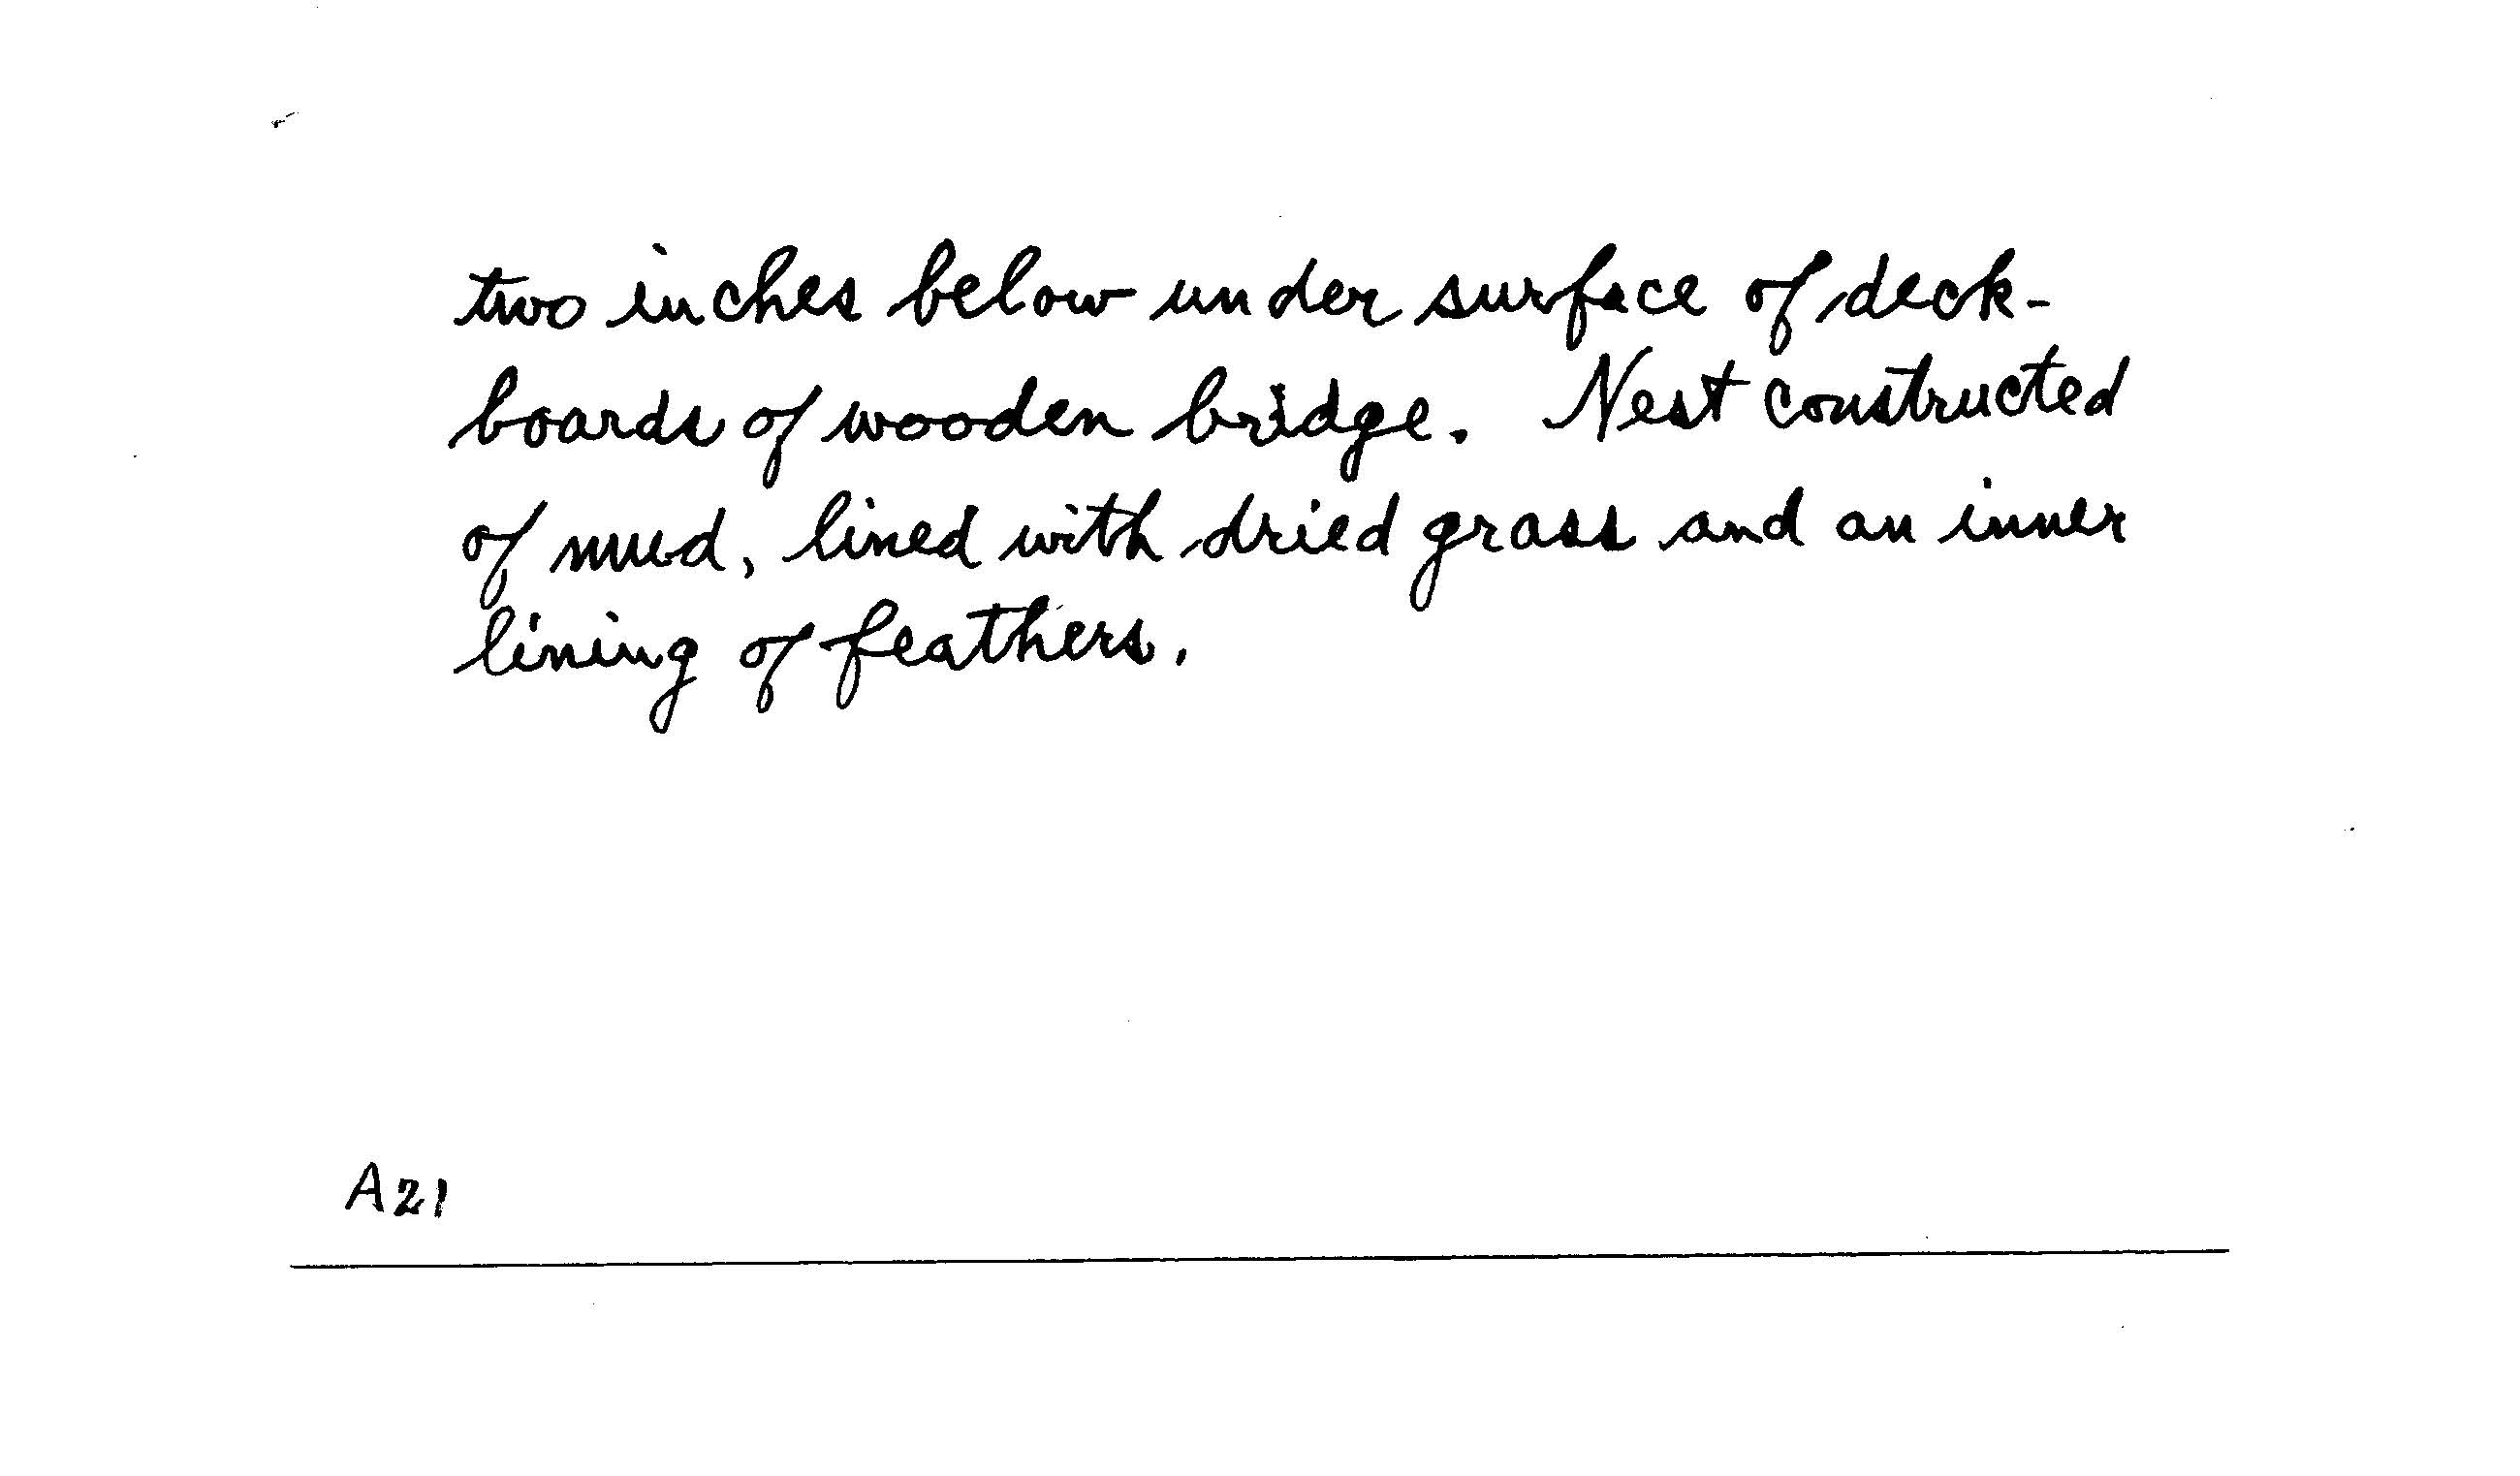 two inches below under surface of deck-
boards of wooden bridge. Nest constructed
of mud, lined with dried grass and an inner
lining of feathers.
A21